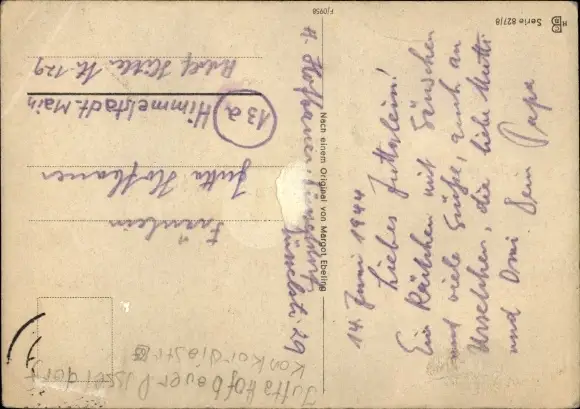 14. Juni 1944
Liebes Juttalein!
Ein Kätzchen mit Gänschen
und viele Grüße, auch an
Urselchen, die liebe Mutti
und Omi Dein Papa
H. Hofbauer
29
Fräulein
Jutta Hofbauer
13a Himmelstadt-Main
Adolf Hitler Str. 129
Nach einem Original von Margot Ebeling
Serie 827/8
F/0958
Jutta Hofbauer Düsseldorf
Konkordiastr